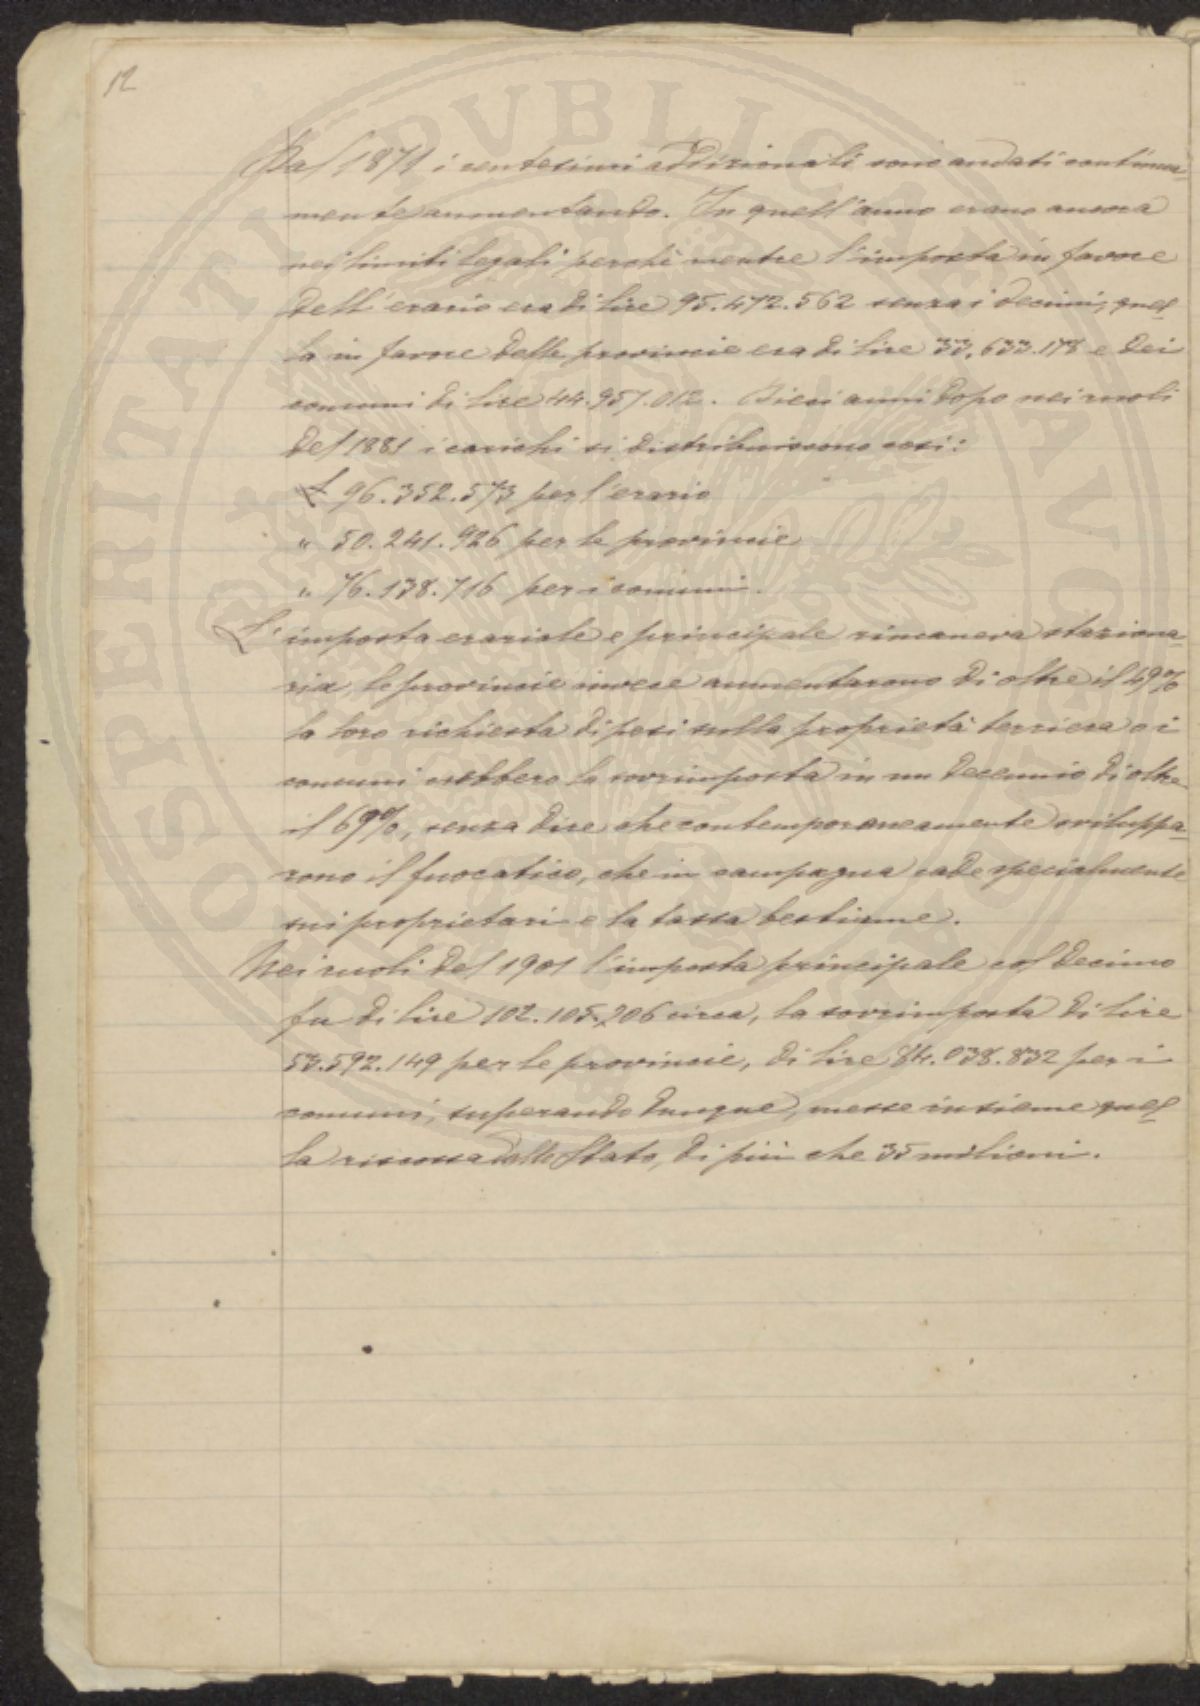 12
Dal 1871 i centesimi addizionali sono andati continua-
mente aumentando. In quell'anno erano ancora
nei limiti legali perchè mentre l'imposta in favore
dell'erario era di lire 95.472.562 senza i decimi, quel-
la in favore delle provincie era di lire 33.633.178 e dei
comuni di lire 44.957.012. Dieci anni dopo nei ruoli
del 1881 i carichi si distribuiscono così:
£ 96.352.573 per l'erario
" 50.241.926 per le provincie
" 76.138.716 per i comuni.
L'imposta erariale e principale rimaneva staziona-
ria, le provincie invece aumentarono di oltre il 49%
la loro richiesta di pesi sulla proprietà terriera e i
comuni crebbero la sovrimposta in un decennio di oltre
il 69%, senza dire che contemporaneamente sviluppa-
rono il fuocatico, che in campagna cade specialmente
sui proprietari e la tassa bestiame.
Nei ruoli del 1901 l'imposta principale col decimo
fu di lire 102.105.206 circa, la sovrimposta di lire
53.592.149 per le provincie, di lire 84.038.832 per i
comuni, superando dunque, messe insieme quel-
la riscossa dallo Stato, di più che 35 milioni.
PVBLICAE
PROSPERITATI